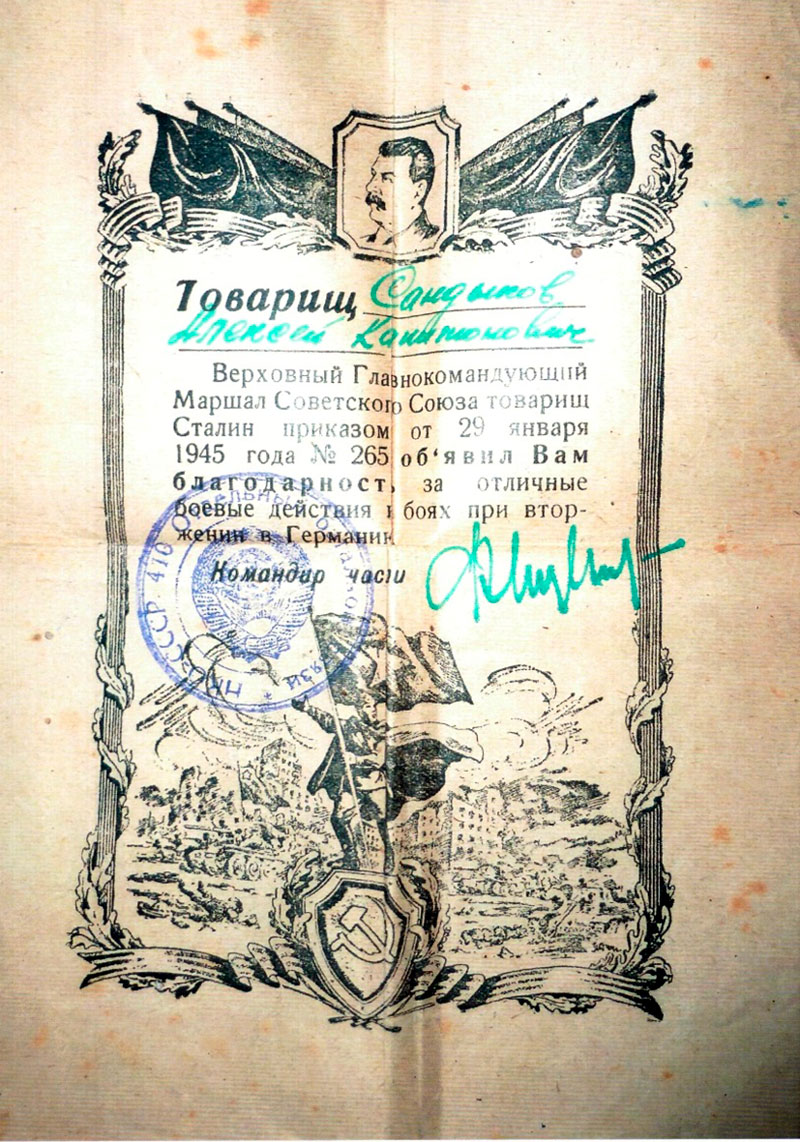 Товарищ Сандыков
Алексей Капитонович
Верховный Главнокомандующий
Маршал Советского Союза товарищ
Сталин приказом от 29 января
1945 года № 265 об‘явил Вам
благодарност, за отличные
боевые действия в боях при втор-
жении в Германию
Командир части
НКО СССР 410 Отдельный